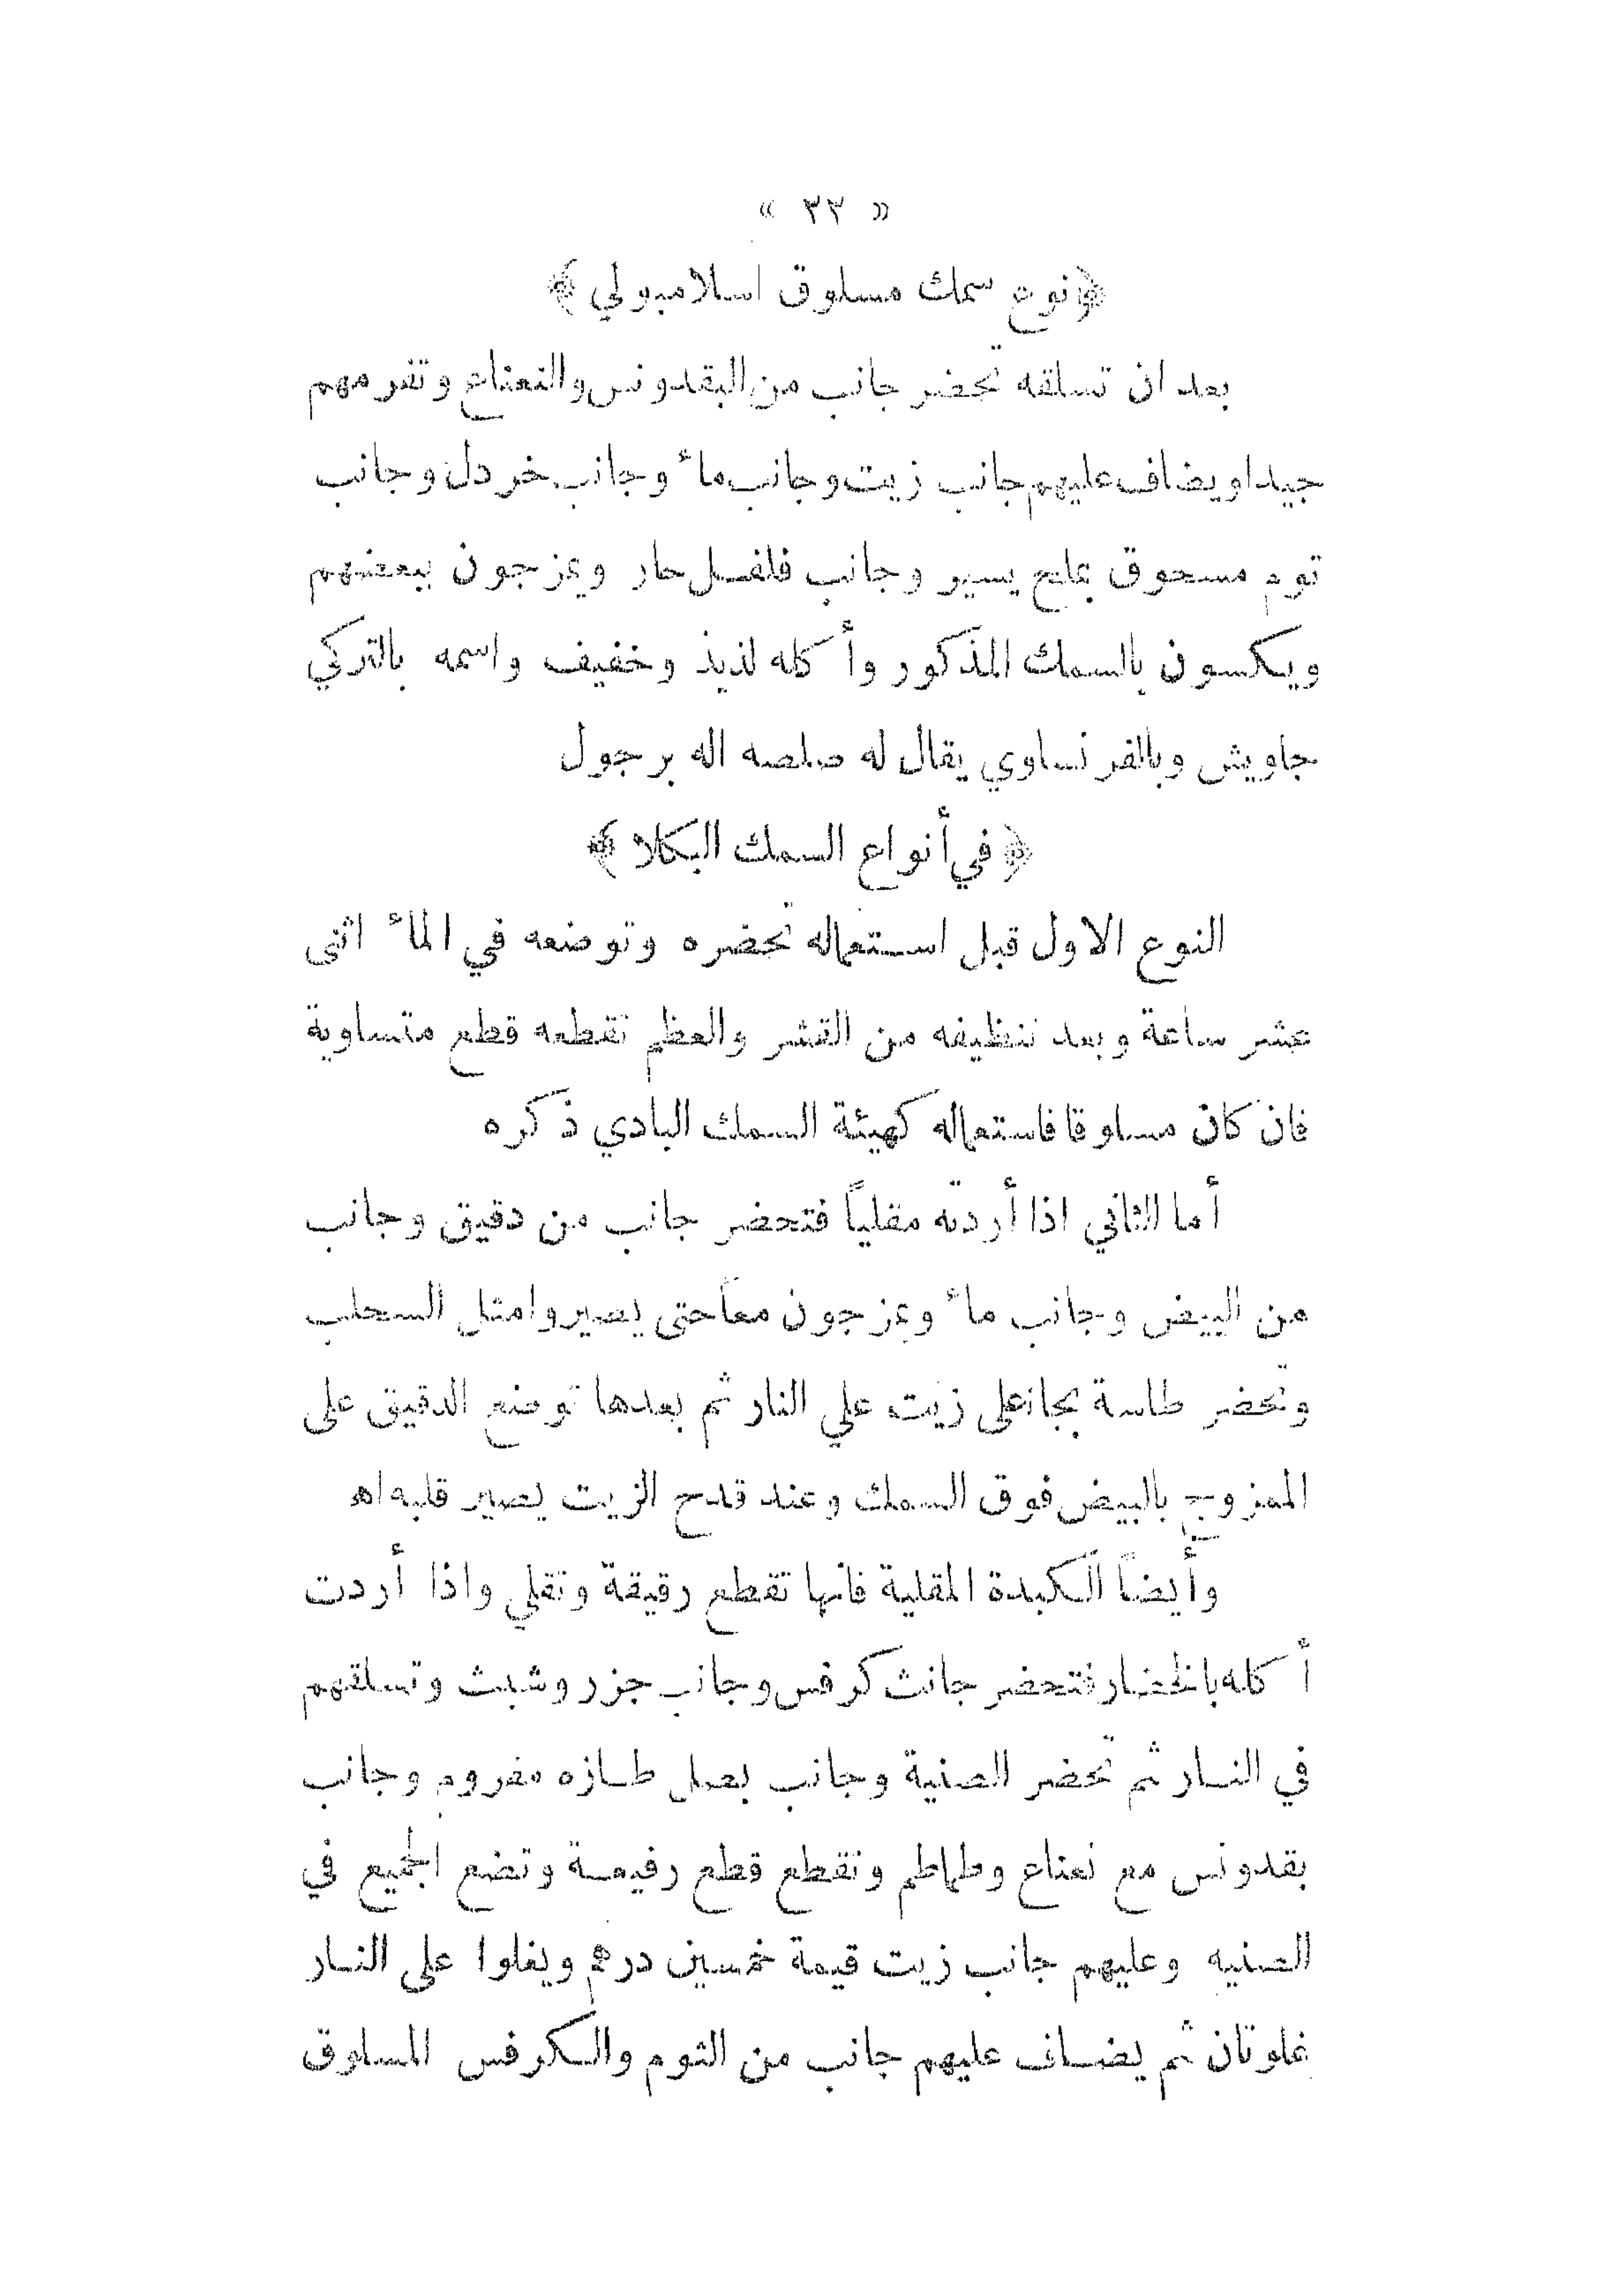 « ٣٣ »
﴿نوع سمك مسلوق اسلامبولي﴾
بعد ان تسلقه تحضر جانب من البقدونس والنعناع وتفرمهم
جيدا ويضاف عليهم جانب زيت وجانب ماء وجانب خردل وجانب
توم مسحوق بملح يسير وجانب فلفل حار ويمزجون ببعضهم
ويكسون بالسمك المذكور وأكله لذيذ وخفيف واسمه بالتركي
جاويش وبالفرنساوي يقال له صلصه اله برجول
﴿في أنواع السمك البكلا﴾
النوع الاول قبل استعماله تحضره وتوضعه في الماء اثنى
عشر ساعة وبعد تنظيفه من القشر والعظم تقطعه قطع متساوية
فان كان مسلوقا فاستعماله كهيئة السمك البادي ذكره
أما الثاني اذا أردته مقلياً فتحضر جانب من دقيق وجانب
من البيض وجانب ماء ويمزجون معاً حتى يصيروا مثل السحلب
وتحضر طاسة بجانب زيت علي النار ثم بعدها توضع الدقيق على
الممزوج بالبيض فوق السمك وعند قدح الزيت يصير قليه اه
وأيضاً الكبدة المقلية فانها تقطع رقيقة وتقلي واذا أردت
أكله بالخضار فتحضر جانب كرفس وجانب جزر وشبث وتسلقهم
في النار ثم تحضر الصنية وجانب بصل طازه مفروم وجانب
بقدونس مع نعناع وطماطم وتقطع قطع رفيعة وتضع الجميع في
الصنيه وعليهم جانب زيت قيمة خمسين درهم ويغلوا على النار
غلوتان ثم يضاف عليهم جانب من الثوم والكرفس المسلوق